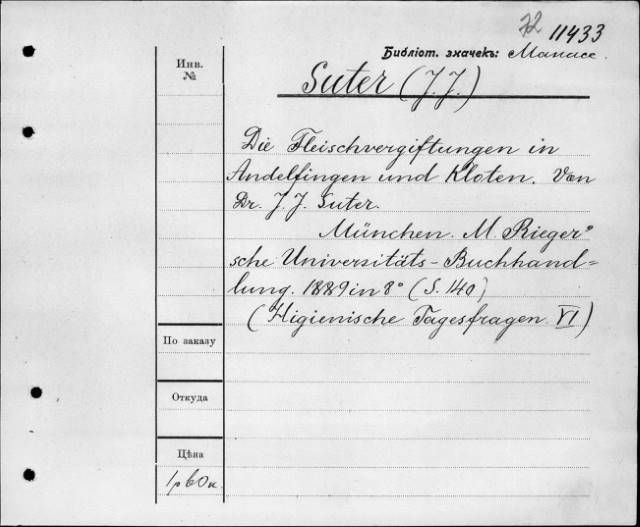 72 11433
Библіот. значекъ:
Инв.
№
Suter (J. J.)
Die Fleischvergiftungen in
Andelfingen und Kloten. Von
Dr. J. J. Suter.
München. M. Rieger'
sche Universitäts-Buchhand=
lung. 1889 in 8° (S. 140)
(Higienische Tagesfragen VI)
По заказу
Откуда
Цѣна
1 р 60 к.